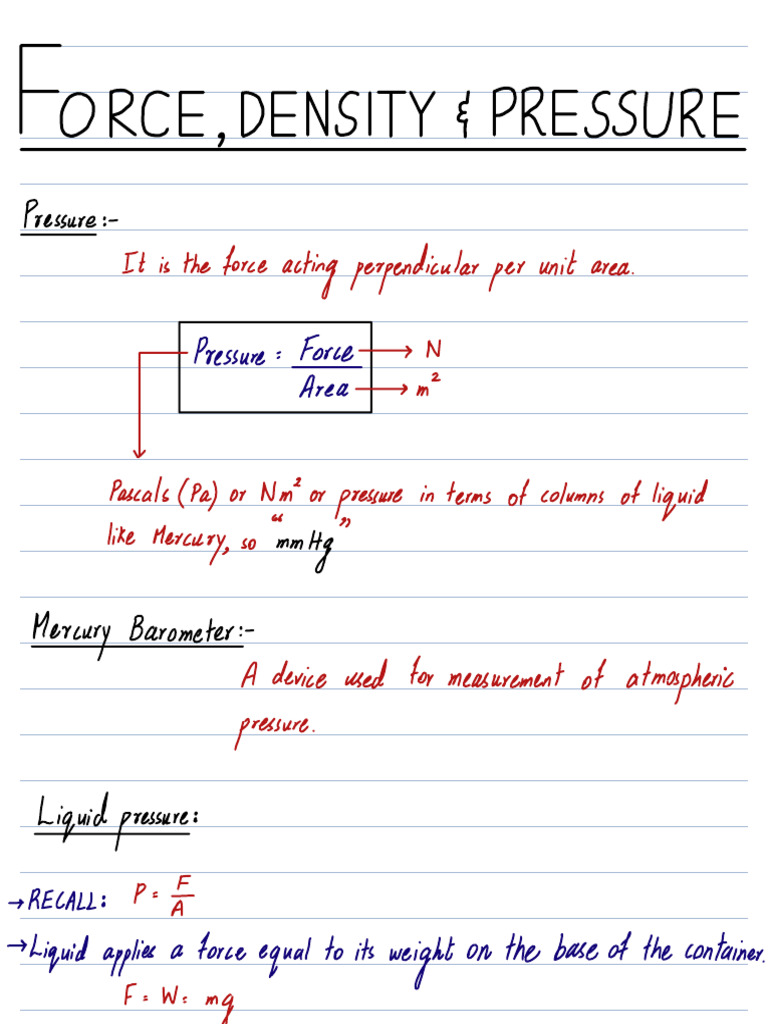 FORCE, DENSITY & PRESSURE
Pressure:-
It is the force acting perpendicular per unit area.
Pressure = Force → N
Area → m²
Pascals (Pa) or Nm² or pressure in terms of columns of liquid
like Mercury, so "mmHg"
Mercury Barometer:-
A device used for measurement of atmospheric
pressure.
Liquid pressure:
→ RECALL: P = F/A
→ Liquid applies a force equal to its weight on the base of the container.
F = W = mg